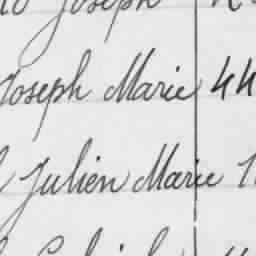 Joseph
Joseph Marie 44
Julien Marie